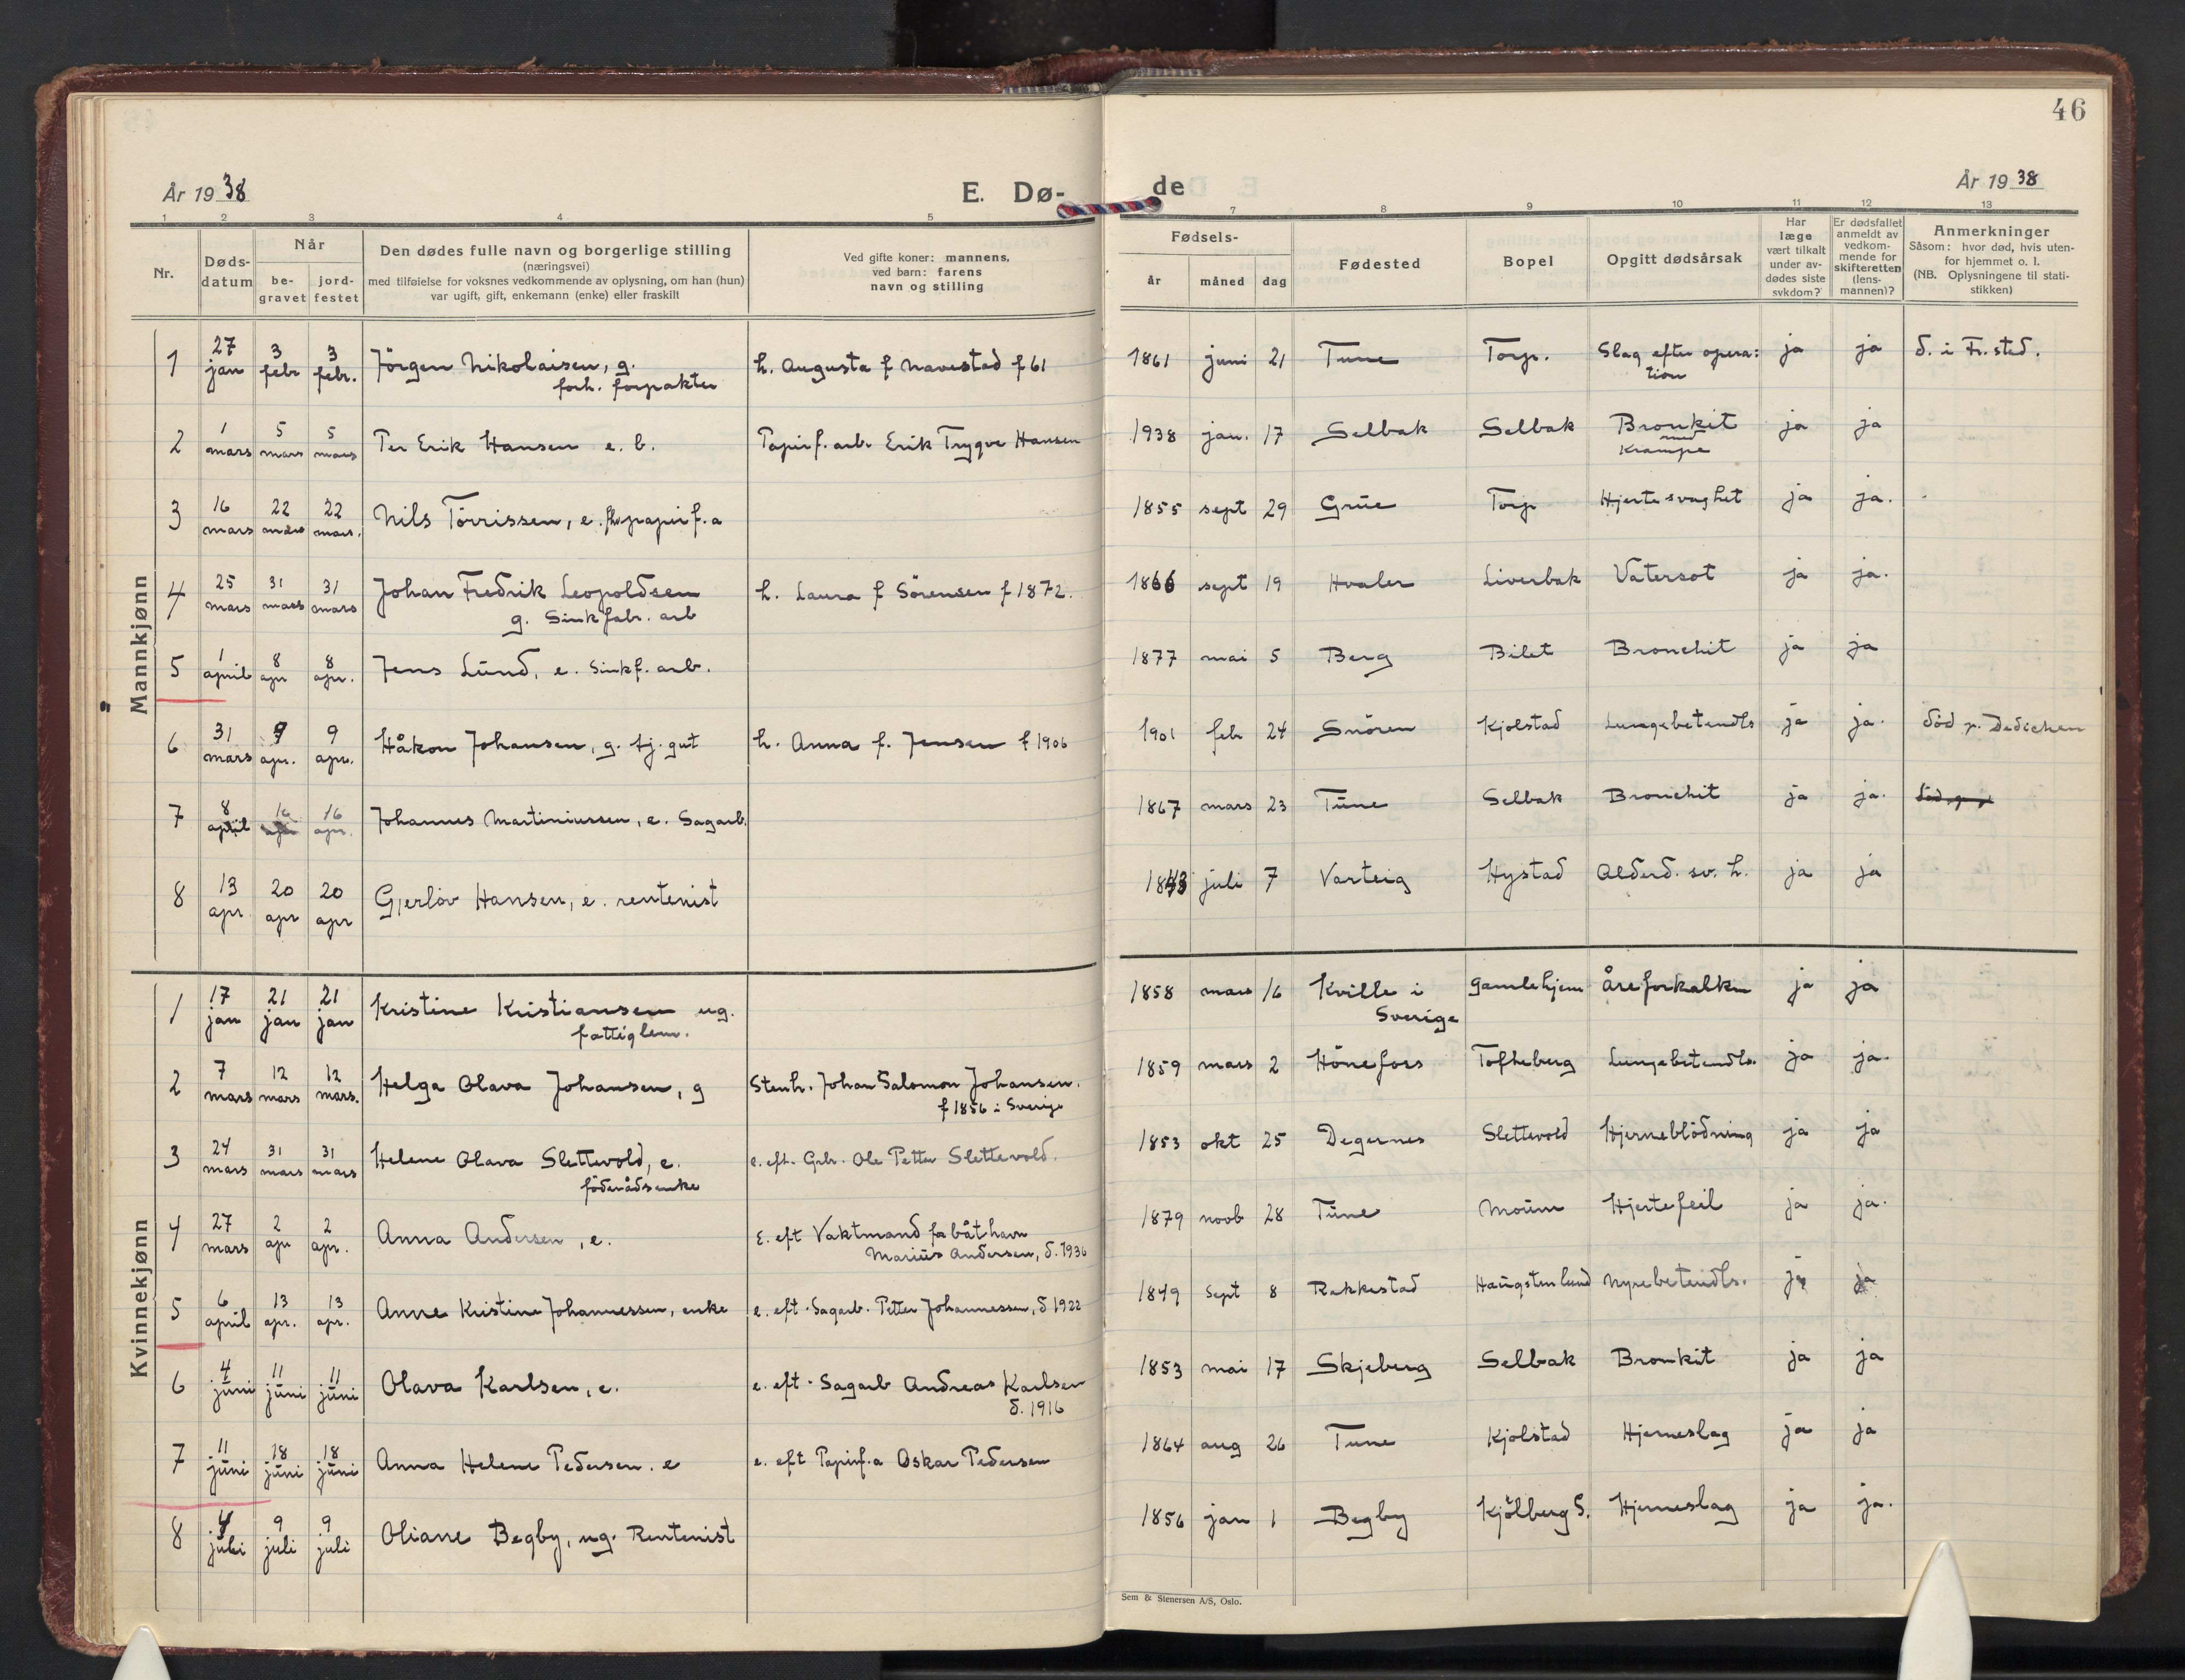 46
År 1938
E. Dø-
de
År 1938
1 2 3 4 5 7 8 9 10 11 12 13
Nr.
Døds-
datum
Når
be-
gravet
jord-
festet
Den dødes fulle navn og borgerlige stilling
(næringsvei)
med tilføielse for voksnes vedkommende av oplysning, om han (hun)
var ugift, gift, enkemann (enke) eller fraskilt
Ved gifte koner: mannens,
ved barn: farens
navn og stilling
Fødsels-
år måned dag
Fødested
Bopel
Opgitt dødsårsak
Har
læge
vært tilkalt
under av-
dødes siste
sykdom?
Er dødsfallet
anmeldt av
vedkom-
mende for
skifteretten
(lens-
mannen)?
Anmerkninger
Såsom: hvor død, hvis uten-
for hjemmet o. l.
(NB. Oplysningene til stati-
stikken)
Mannkjønn
1 27 jan 3 febr 3 febr. Jörgen Nikolaisen, g. forh. forpakter h. Augusta f Navestad f 61 1861 juni 21 Tune Torp. Slag efter opera: tion ja ja d. i Fr.sted.
2 1 mars 5 mars 5 mars Per Erik Hansen e. b. Papirf. arb Erik Trygve Hansen 1938 jan. 17 Selbak Selbak Bronkit med Krampe ja ja
3 16 mars 22 mars 22 mars. Nils Törrissen, e. fhv papirf. a 1855 sept 29 Grue Torp Hjertesvaghet ja ja.
4 25 mars 31 mars 31 mars Johan Fredrik Leopoldsen g. Sinkfabr. arb h. Laura f Sörensen f 1872. 1866 sept 19 Hvaler Liverbak Vatersot ja ja.
5 1 april 8 apr 8 apr. Jens Lund, e. Sinkf. arb. 1877 mai 5 Berg Bilet Bronchit ja ja
6 31 mars 9 apr. 9 apr. Håkon Johansen, g. tj. gut h. Anna f. Jensen f 1906 1901 feb 24 Snören Kjolstad Lungebetendls ja ja. död p. Dedichen
7 8 april 16 apr 16 apr. Johannes Martiniussen, e. Sagarb. 1867 mars 23 Tune Selbak Bronchit ja ja.
8 13 apr 20 apr 20 apr Gjerlöv Hansen, e. rentenist 1843 juli 7 Varteig Hystad Alderd. sv. h. ja ja
Kvinnekjønn
1 17 jan 21 jan 21 jan Kristine Kristiansen ug. fattiglem. 1858 mars 16 Kville i Sverige Gamlehjem Åreforkalkn ja ja
2 7 mars 12 mars 12 mars. Helga Olava Johansen, g Stenh. Johan Salomon Johansen. f 1856 i Sverige 1859 mars 2 Hönefors Tofteberg Lungebetendls. ja ja.
3 24 mars 31 mars 31 mars Helene Olava Slettevold, e. föderådsenke e. eft. Grbr. Ole Petter Slettevold. 1853 okt 25 Degernes Slettevold Hjerneblödning ja ja
4 27 mars 2 apr 2 apr. Anna Andersen, e. E. eft Vaktmand for båthavn Marius Andersen, d. 1936 1879 novb 28 Tune Moum Hjertefeil ja ja.
5 6 april 13 apr. 13 apr. Anne Kristine Johannessen, enke e. eft. Sagarb. Petter Johannessen, d 1922 1849 Sept 8 Rakkestad Haugstenlund Nyrebetendls. ja ja
6 4 juni 11 juni 11 juni Olava Karlsen, e. e. eft. Sagarb Andreas Karlsen d. 1916 1853 mai 17 Skjeberg Selbak Bronkit ja ja
7 11 juni 18 juni 18 juni Anna Helene Pedersen. e e. eft Papirf. a Oskar Pedersen 1864 aug 26 Tune Kjolstad Hjerneslag ja ja
8 4 juli 9 juli 9 juli Oliane Begby, ug. Rentenist 1856 jan 1 Begby Kjölberg S. Hjerneslag ja ja.
Sem & Stenersen A/S, Oslo.